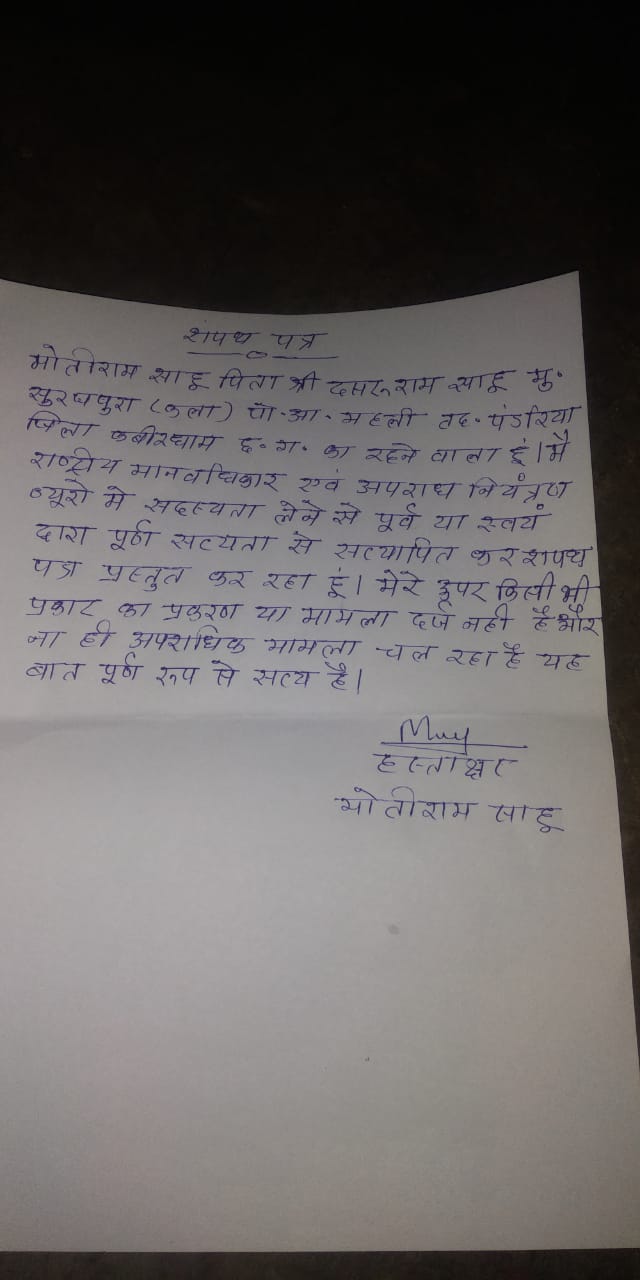 शपथ पत्र
मोतीराम साहू पिता श्री दसरूराम साहू मु.
सुरजपुरा (कला) पो.आ. महली तह. पंडरिया
जिला कबीरधाम छ. ग. का रहने वाला हूं। मै
राष्ट्रीय मानवाधिकार एवं अपराध नियंत्रण
ब्यूरो मे सदस्यता लेने से पूर्व या स्वयं
द्वारा पूर्ण सत्यता से सत्यापित कर शपथ
पत्र प्रस्तुत कर रहा हूं। मेरे ऊपर किसी भी
प्रकार का प्रकरण या मामला दर्ज नही है और
ना ही अपराधिक मामला चल रहा है यह
बात पूर्ण रूप से सत्य है।
हस्ताक्षर
मोतीराम साहू